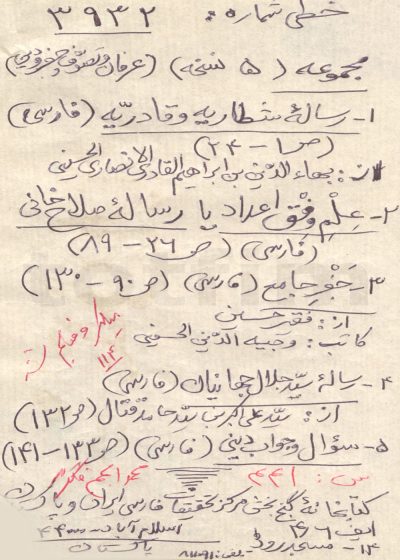 خطی شماره: ۳۹۳۲
مجموعه (۵ نسخه) (عرفان و تصوف و جفر و دینی)
۱- رسالهٔ شطاریه و قادریّه (فارسی)
(ص ۱ – ۲۴)
از: بهاء الدّین بن ابراهیم القادری الانصاری الحسینی
۲- عِلْمِ وِفْقِ اعداد یا رسالهٔ صلاح خانی
(فارسی) (ص ۲۶ – ۸۹)
۳- جَفْرِ جامع (فارسی) (ص ۹۰ – ۱۳۰)
از: فقیر حسین
کاتب: وجیه الدّین الحسینی
۴- رسالهٔ سیّد جلال جهانیان (فارسی)
از: سیّد علی اکبر بن سیّد حامد قتال (ص ۱۳۲)
۵- سؤال و جواب دینی (فارسی) (ص ۱۳۳ – ۱۴۱)
س: ۴۴۱
کتابخانهٔ گنج بخش مرکز تحقیقات فارسی ایران و پاکستان
ایف ۶/۴
اسلام آباد – ۴۴۰۰۰
پاکستان